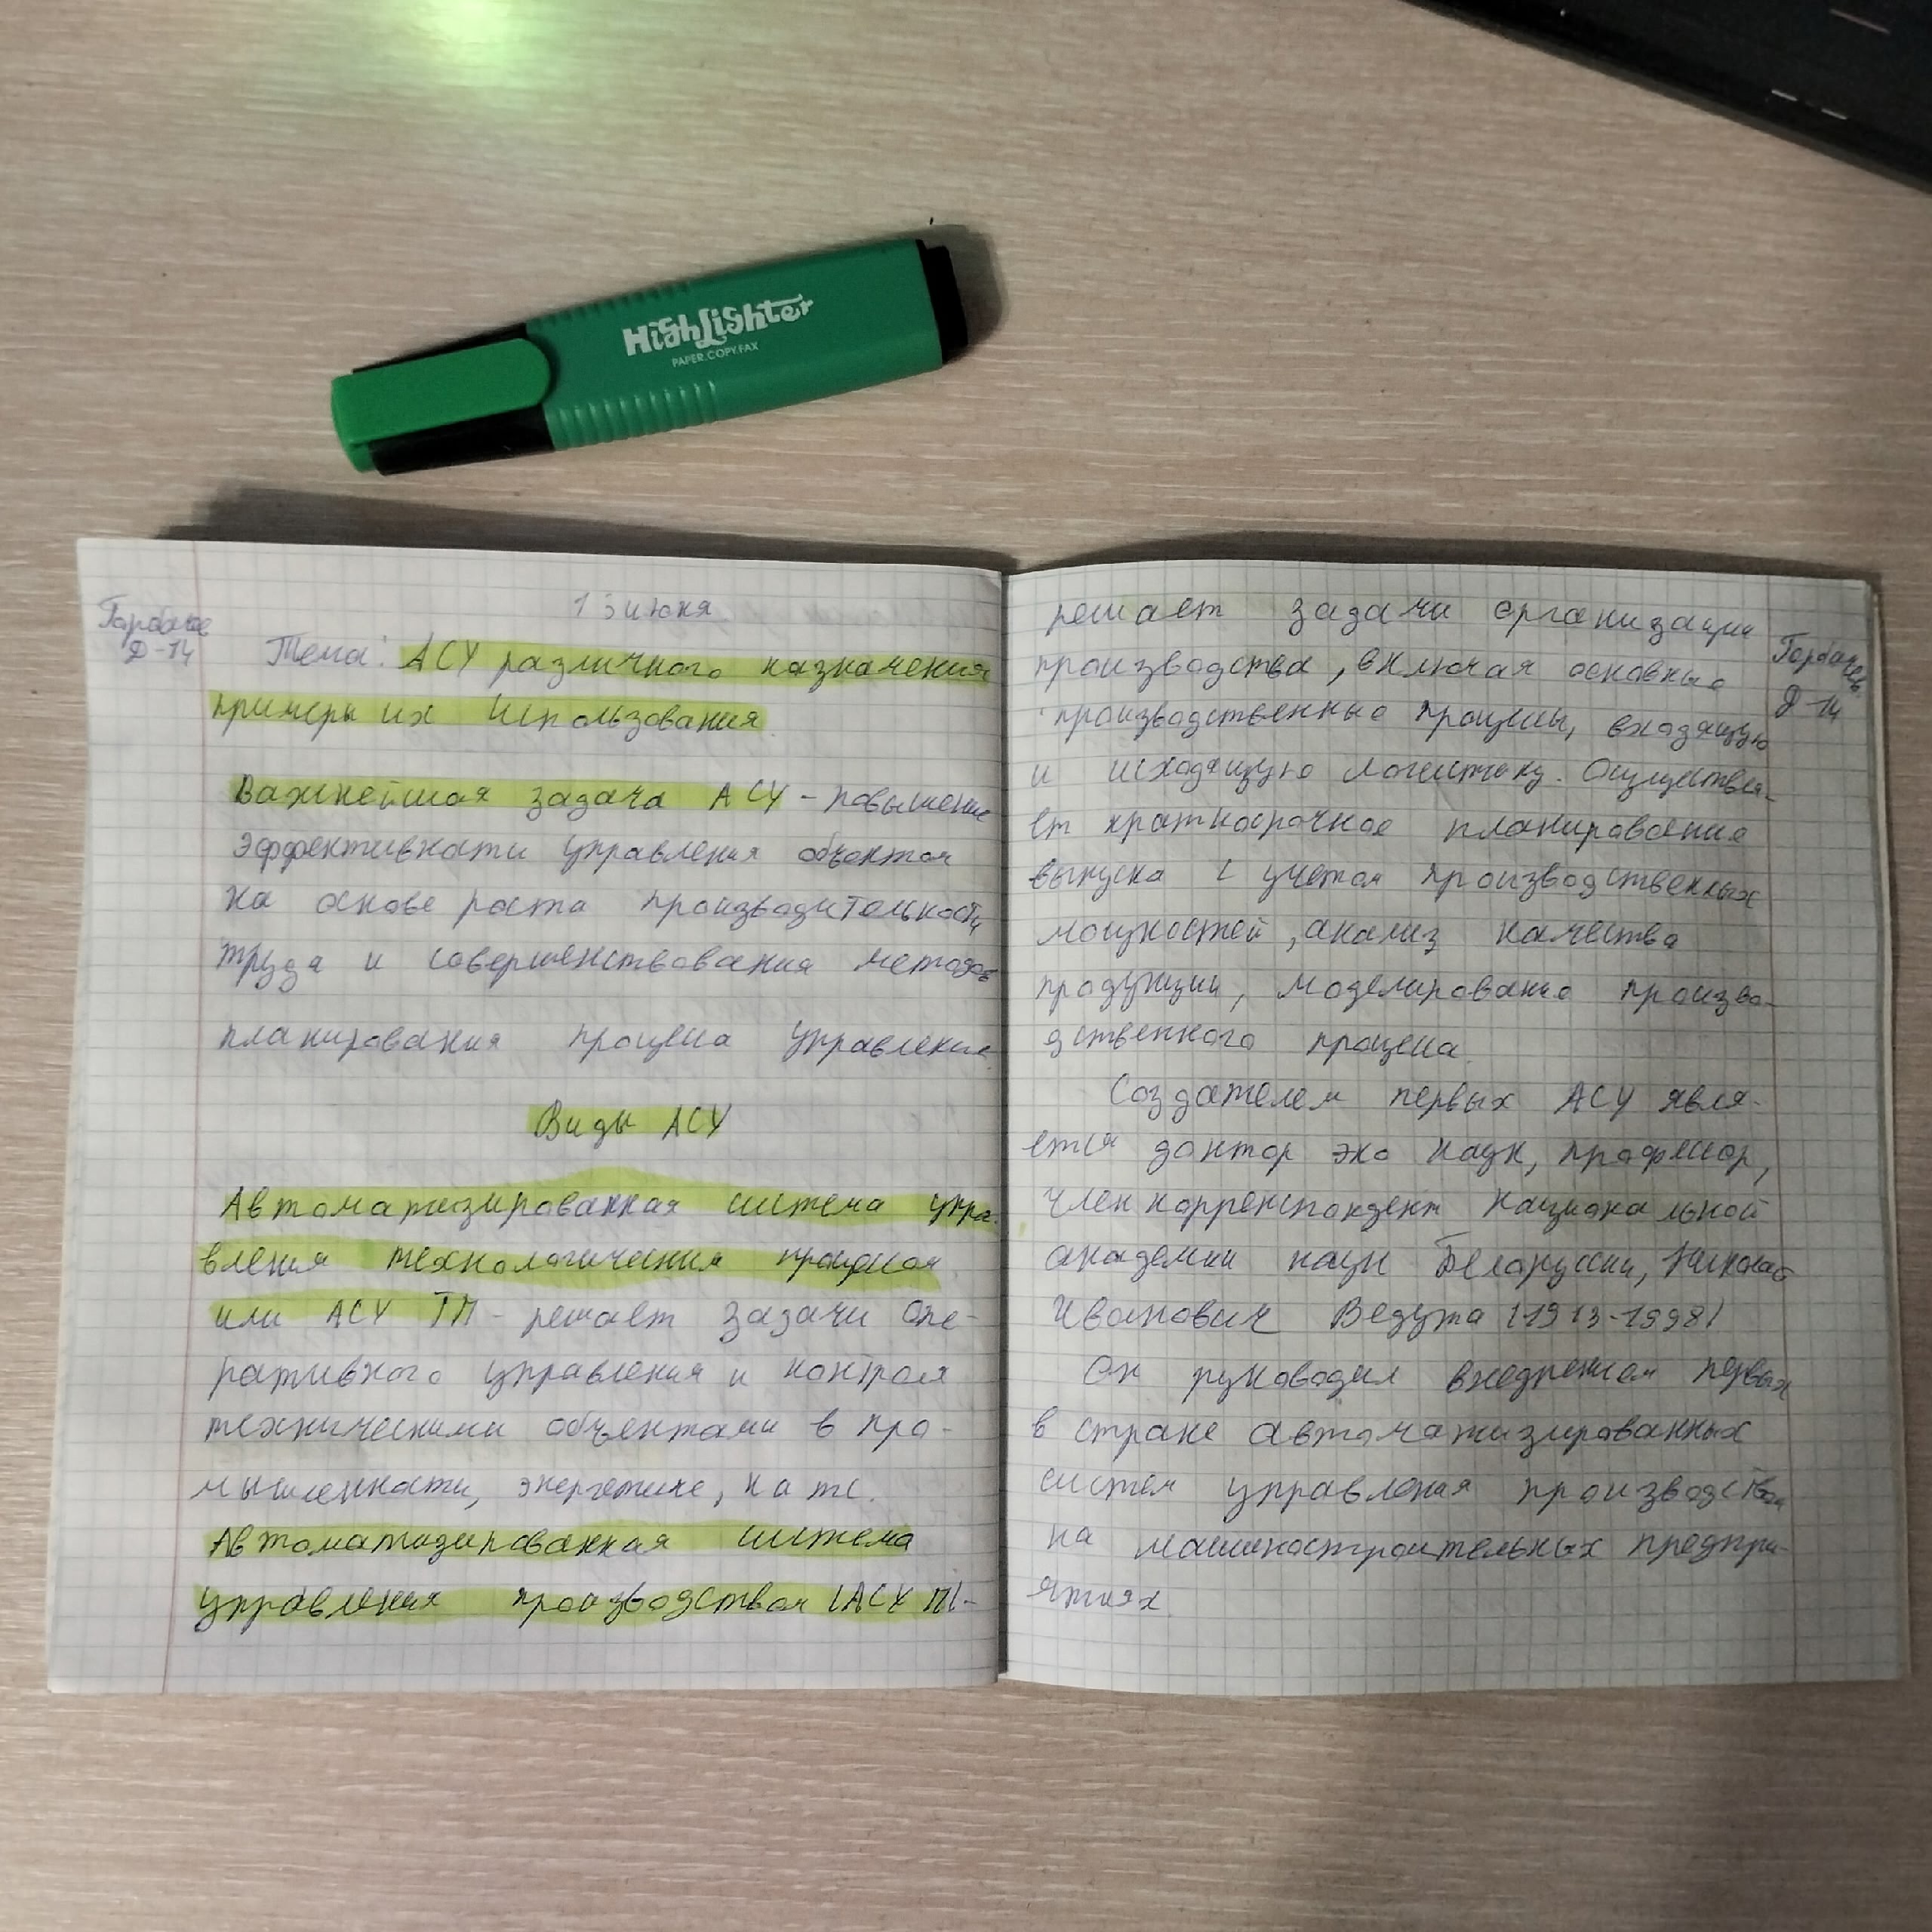 HighLighter
PAPER.COPY.FAX
Горбачев
Д-14
13 июня
Тема: АСУ различного назначения
примеры их использования.
Важнейшая задача АСУ - повышение
эффективности управления объектом
на основе роста производительности
труда и совершенствования методов
планирования процесса управления
Виды АСУ
Автоматизированная система упра-
вления технологическим процессом
или АСУ ТП - решает задачи опе-
ративного управления и контроля
техническими объектами в про-
мышленности, энергетике, на тс.
Автоматизированная система
управления производством (АСУ П)-
решает задачи организации
Горбачев
Д-14
производства, включая основные
производственные процессы, входящую
и исходящую логистику. Осуществля-
ет краткосрочное планирование
выпуска с учетом производственных
мощностей, анализ качества
продукции, моделирование произво-
дственного процесса.
Создателем первых АСУ явля-
ется доктор эко наук, профессор,
член корреспондент национальной
академии наук Белоруссии, Николай
Иванович Ведута (1913-1998)
Он руководил внедрением первых
в стране автоматизированных
систем управления производством
на машиностроительных предпри-
ятиях.